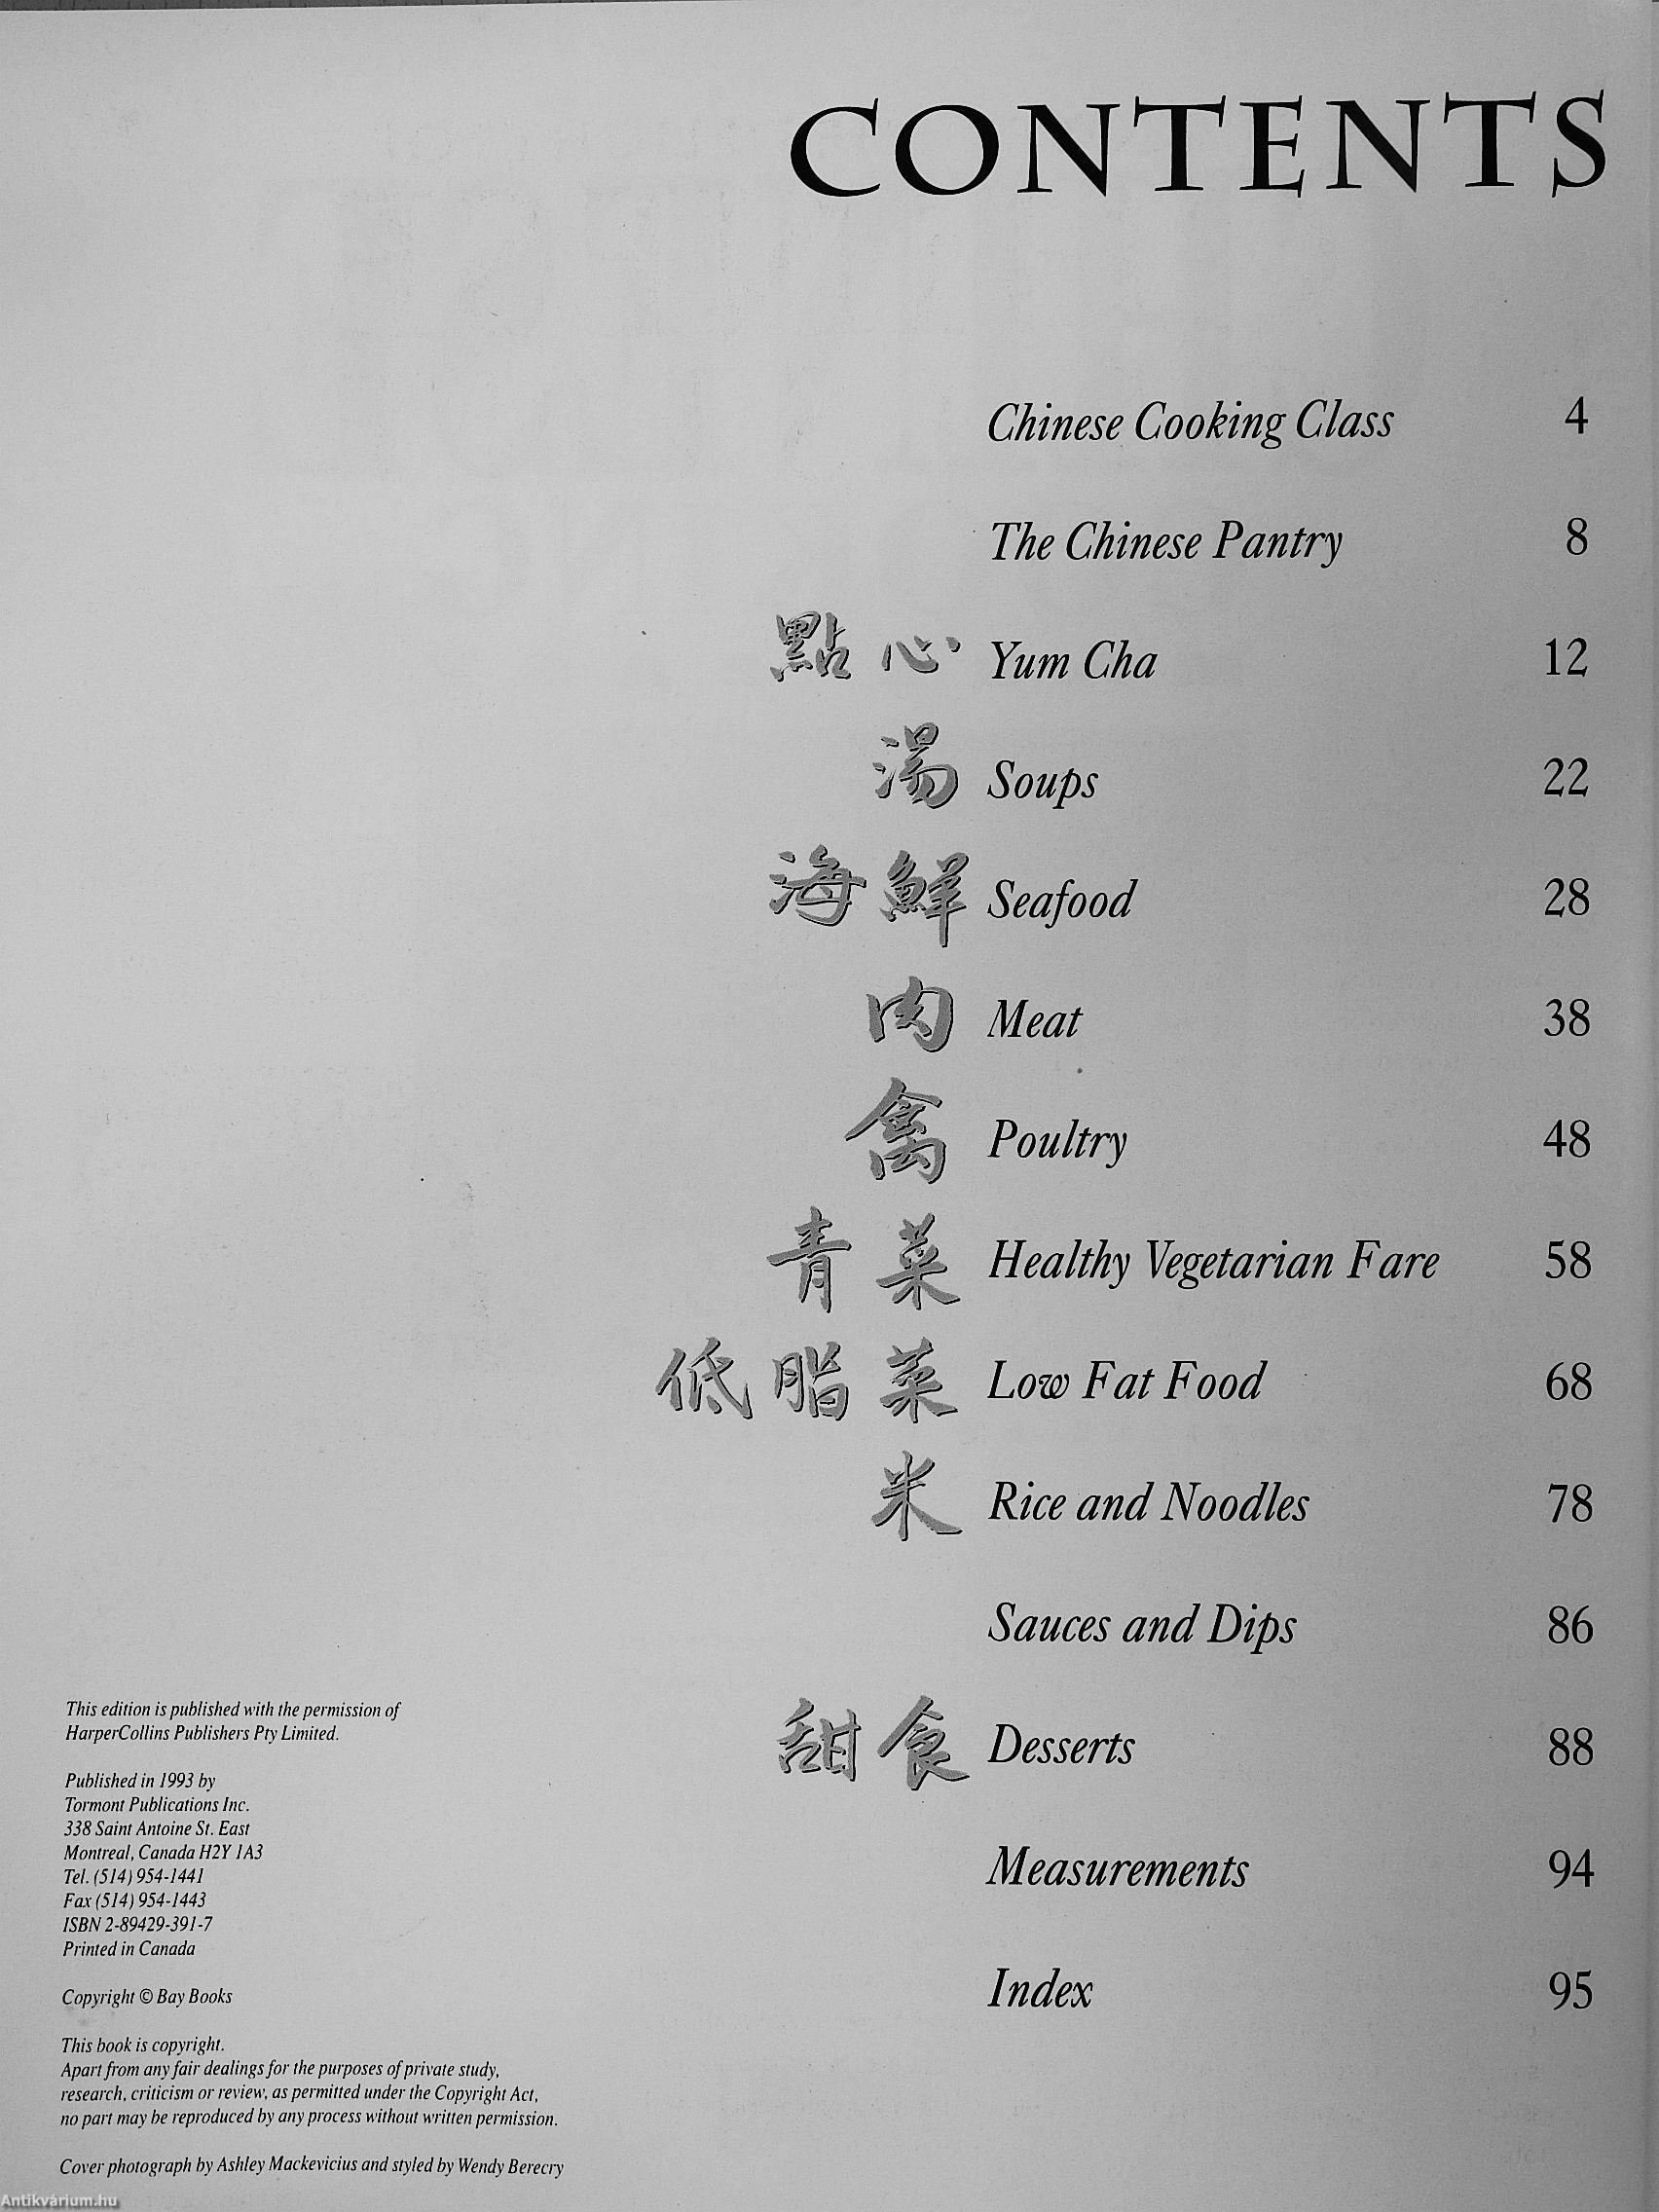 CONTENTS
Chinese Cooking Class 4
The Chinese Pantry 8
點心 Yum Cha 12
湯 Soups 22
海鮮 Seafood 28
肉 Meat 38
禽 Poultry 48
青菜 Healthy Vegetarian Fare 58
低脂菜 Low Fat Food 68
米 Rice and Noodles 78
Sauces and Dips 86
甜食 Desserts 88
Measurements 94
Index 95
This edition is published with the permission of
HarperCollins Publishers Pty Limited.
Published in 1993 by
Tormont Publications Inc.
338 Saint Antoine St. East
Montreal, Canada H2Y 1A3
Tel. (514) 954-1441
Fax (514) 954-1443
ISBN 2-89429-391-7
Printed in Canada
Copyright © Bay Books
This book is copyright.
Apart from any fair dealings for the purposes of private study,
research, criticism or review, as permitted under the Copyright Act,
no part may be reproduced by any process without written permission.
Cover photograph by Ashley Mackevicius and styled by Wendy Berecry
Antikvárium.hu